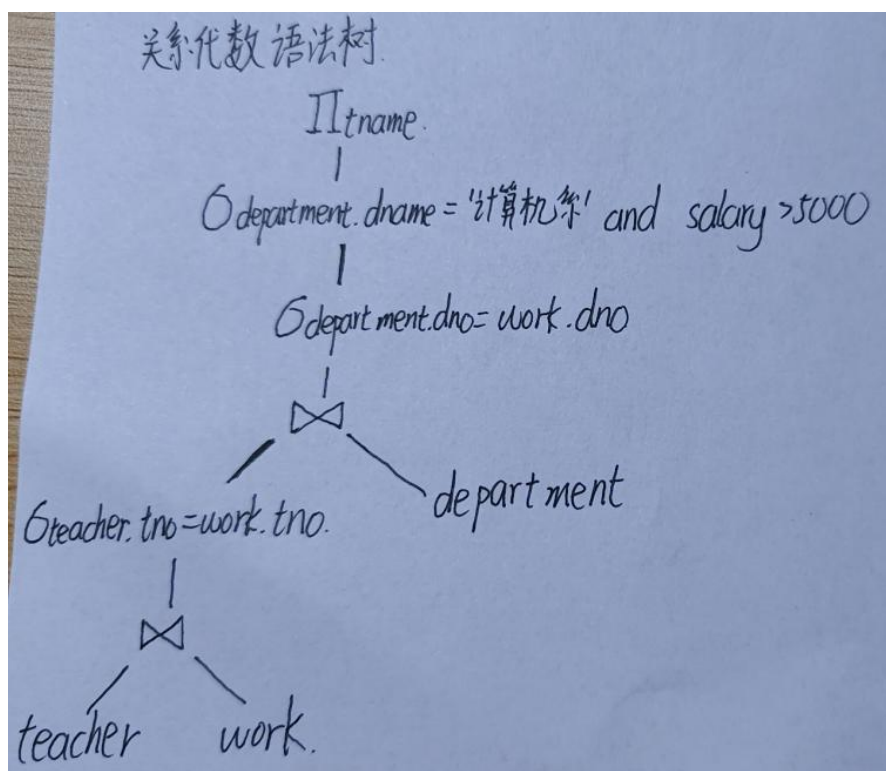 关系代数语法树.
∏tname.
σdepartment.dname='计算机系' and salary>5000
σdepartment.dno=work.dno
⋈
σteacher.tno=work.tno.
department
⋈
teacher work.